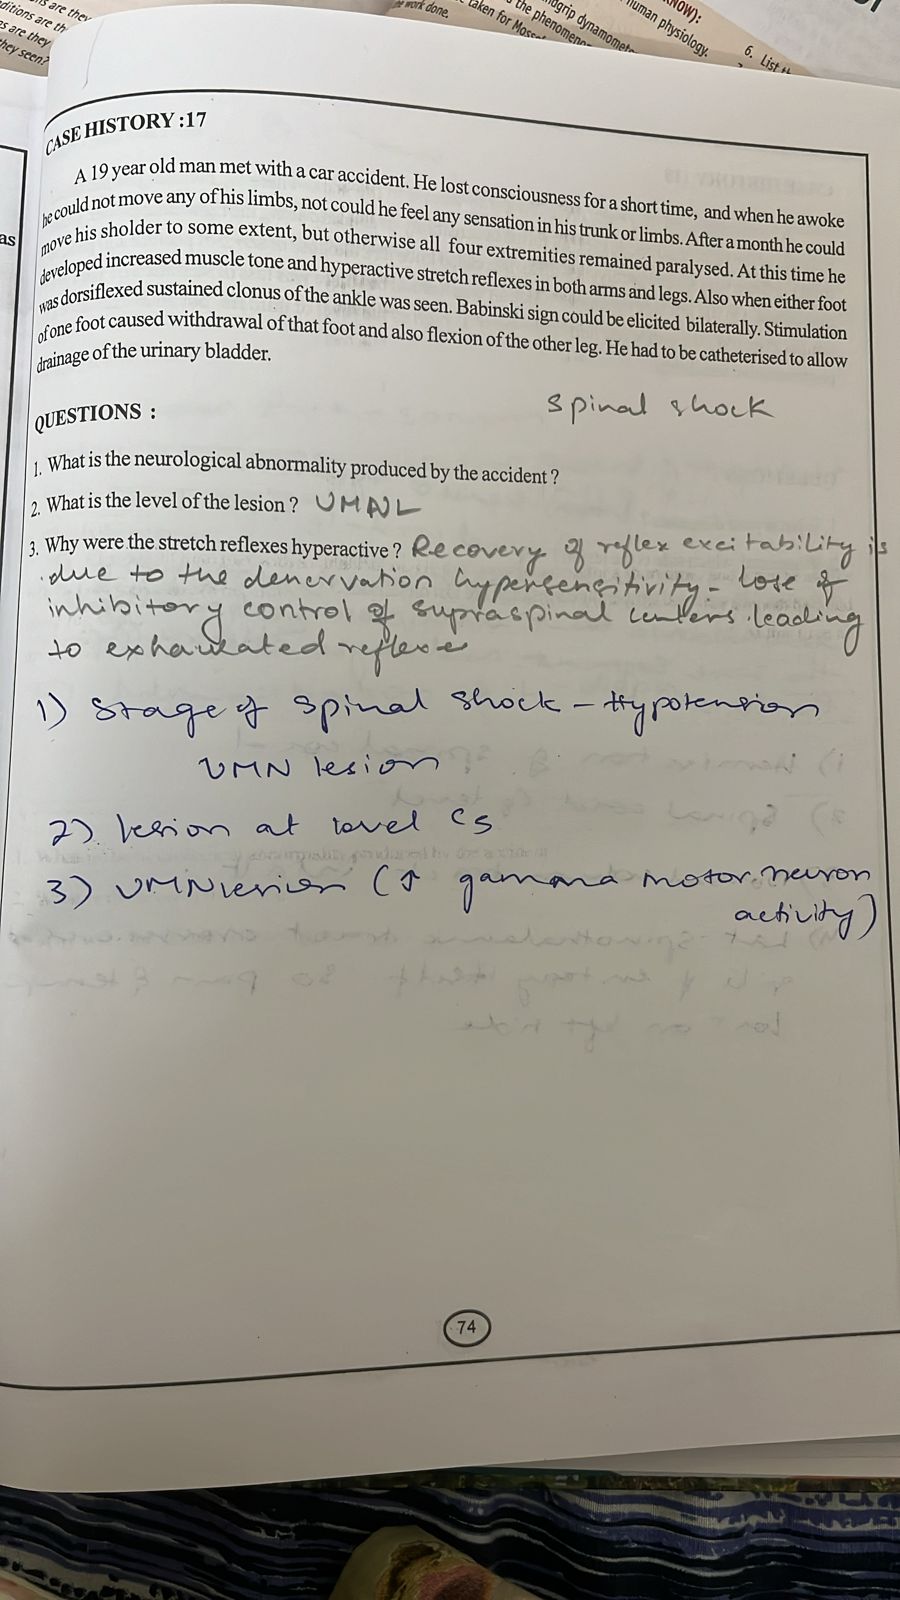 ditions are th
s are they
hey seen?
as
the work done.
taken for Mosso
the phenomenon
dgrip dynamomete
human physiology.
NOW):
6. List th
CASE HISTORY :17
A 19 year old man met with a car accident. He lost consciousness for a short time, and when he awoke
he could not move any of his limbs, not could he feel any sensation in his trunk or limbs. After a month he could
move his sholder to some extent, but otherwise all four extremities remained paralysed. At this time he
developed increased muscle tone and hyperactive stretch reflexes in both arms and legs. Also when either foot
was dorsiflexed sustained clonus of the ankle was seen. Babinski sign could be elicited bilaterally. Stimulation
of one foot caused withdrawal of that foot and also flexion of the other leg. He had to be catheterised to allow
drainage of the urinary bladder.
Spinal shock
QUESTIONS :
1. What is the neurological abnormality produced by the accident ?
2. What is the level of the lesion ? UMNL
3. Why were the stretch reflexes hyperactive ? Recovery of reflex excitability is
due to the denervation hypersensitivity - lose of
inhibitory control of supraspinal centers leading
to exhaurated reflexes
1) Stage of spinal shock - Hypotension
UMN lesion
2) lesion at level C5
3) UMN lesion (↑ gamma motor neuron
activity)
74